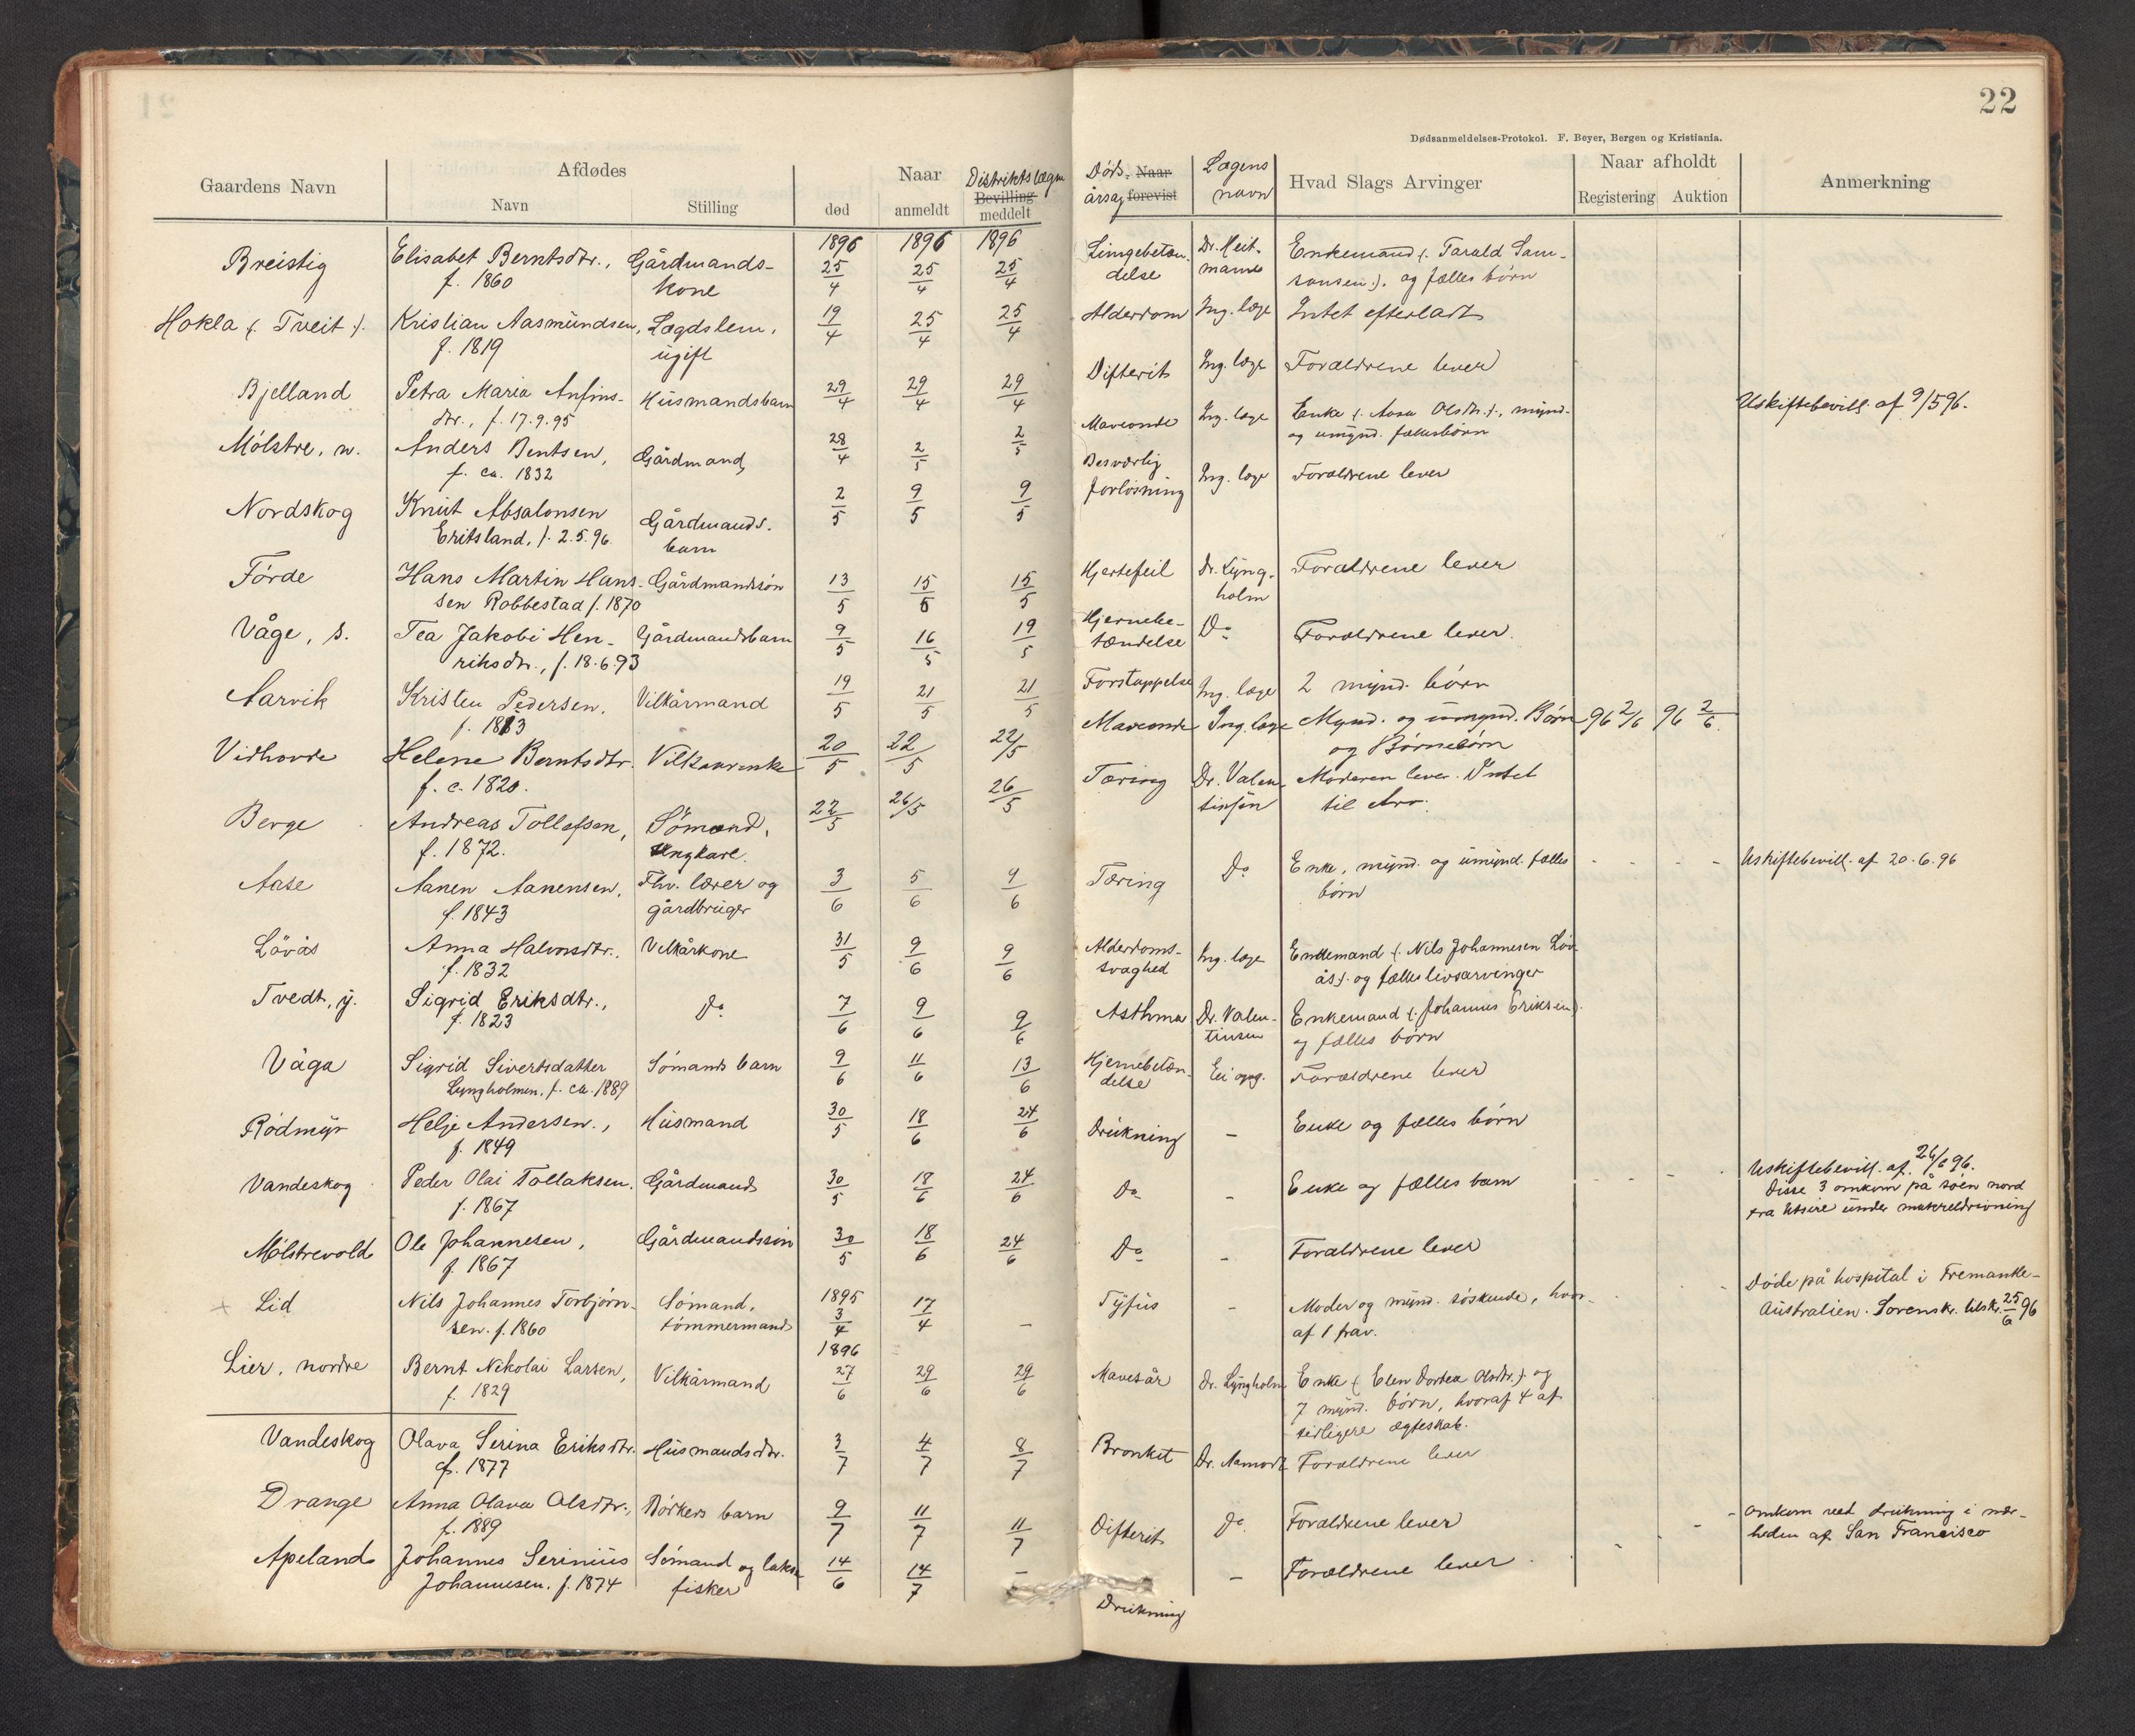 22
Dødsanmeldelses-Protokol. F. Beyer, Bergen og Kristiania.
Gaardens Navn
Afdødes
Navn
Stilling
Naar
død
anmeldt
Distriktslægen
Bevilling
meddelt
Døds- Naar
årsag forevist
Lægens
navn
Hvad Slags Arvinger
Naar afholdt
Registering
Auktion
Anmerkning
1896 1896 1896
Breistig Elisabet Berntsdtr., Gårdmands- 25/4 25/4 25/4 Lungebetæn- Dr. Heit- Enkemand (: Tarald Sam-
f. 1860 kone delse mann sonsen :). og fælles børn
Hokla (: Tveit :) Kristian Aasmundsen, Lægdslem, 19/4 25/4 25/4 Alderdom Ing. læge Intet efterladt
f. 1819 ugift
Bjelland Petra Maria Anfins- Husmandsbarn 29/4 29/4 29/4 Difterit Ing. læge Forældrene lever
dtr., f. 17.9.95
Mølstre, n. Anders Bentsen, Gårdmand 28/4 2/5 2/5 Maveonde Ing. læge Enke (: Aasa Olsdtr. :), mynd. Uskiftebevill. af 9/5 96.
f. ca. 1832 og umynd. fællesbørn
Nordskog Knut Absalonsen Gårdmands- 2/5 9/5 9/5 Besværlig Ing. læge Forældrene lever
Eritsland, f. 2.5.96. barn forløsning
Førde Hans Martin Hans- Gårdmandssøn 13/5 15/5 15/5 Hjertefeil Dr. Lyng- Forældrene lever
sen Robbestad f. 1870 holm
Våge, s. Tea Jakobi Hen- Gårdmandsbarn 9/5 16/5 19/5 Hjernebe- Do Forældrene lever.
riksdtr., f. 18.6.93 tændelse
Aarvik Kristen Pedersen, Vilkårmand 19/5 21/5 21/5 Forstoppelse Ing. læge 2 mynd. børn
f. 1813
Vidhovde Helene Berntsdtr. Vilkaarenke 20/5 22/5 22/5 Maveonde Ing. læge Mynd. og umynd. Børn 96 2/6 96 2/6.
f. c. 1820. og Børnebørn
Berge Andreas Tollefsen, Sømand, 22/5 26/5 26/5 Tæring Dr. Valen- Moderen lever. Intet
f. 1872. ungkarl. tinsen til Arv.
Aase Aanen Aanensen, Fhv. lærer og 3/6 5/6 9/6 Tæring Do Enke, mynd. og umynd. fælles - - - - Uskiftebevill. af 20.6.96
f. 1843 gårdbruger børn
Løvås Anna Halvorsdtr., Vilkårkone 31/5 9/6 9/6 Alderdoms- Ing. læge Enkemand (: Nils Johannesen Løv-
f. 1832 svaghed ås :). og fælles livsarvinger
Tvedt, y. Sigrid Eriksdtr., Do 7/6 9/6 9/6 Asthma Dr. Valen- Enkemand (: Johannes Eriksen :).
f. 1823 tinsen og fælles børn
Våga Sigrid Sivertsdatter Sømands barn 9/6 11/6 13/6 Hjernebetæn- Ei opg. Forældrene lever
Lyngholmen, f. ca. 1889 delse
Rødmyr Helje Andersen., Husmand 30/5 18/6 24/6 Drukning - Enke og fælles børn
f. 1849
Vandeskog Peder Olai Tollaksen, Gårdmand 30/5 18/6 24/6 Do - Enke og fælles barn - - - Uskiftebevill. af 26/6 96.
f. 1867 Disse 3 omkom på søen nord
fra Utsire under makreldrivning
Mølstrevold Ole Johannesen, Gårdmandssøn 30/5 18/6 24/6 Do - Forældrene lever
f. 1867
+ Lid Nils Johannes Torbjørn- Sømand, 1895 3/4 17/4 - Tyfus - Moder og mynd. søskende, hvor- Døde på hospital i Fremantle-
sen. f. 1860 tømmermand af 1 frav. Australien. Sorensk. tilsk. 25/6 96
1896
Lier, nordre Bernt Nikolai Larsen, Vilkårmand 27/6 29/6 29/6 Mavesår Dr. Lyngholm Enke (: Elen Dortea Olsdtr. :) og
f. 1829 7 mynd. børn, hvoraf 4 af
tidligere ægteskab.
Vandeskog Olava Serina Eriksdtr. Husmandsdtr. 3/7 4/7 8/7 Bronkit Dr. Aamodt Forældrene lever
f. 1877
Drange Anna Olava Olsdtr., Bødkers barn 9/7 11/7 11/7 Difterit Do Forældrene lever
f. 1889
Apeland Johannes Serinius Sømand og lakse- 14/6 14/7 - Drukning - Forældrene lever - - - Omkom ved drukning i nær-
Johannesen. f. 1874 fisker heden af San Francisco